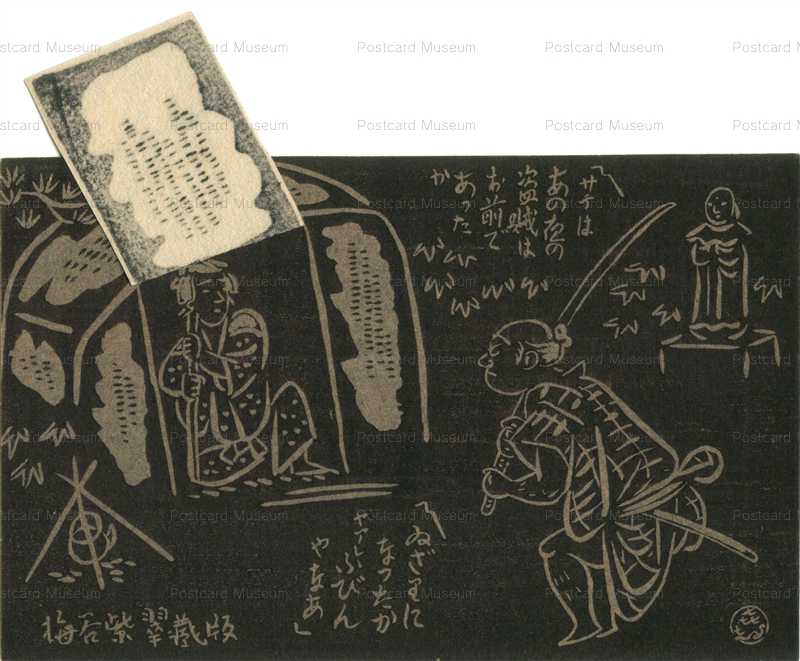 Postcard Museum
「サテは
あの夜の
盗賊は
お前で
あった
か
「ゐざりに
なつたか
やなあ」
梅谷紫翠蔵版